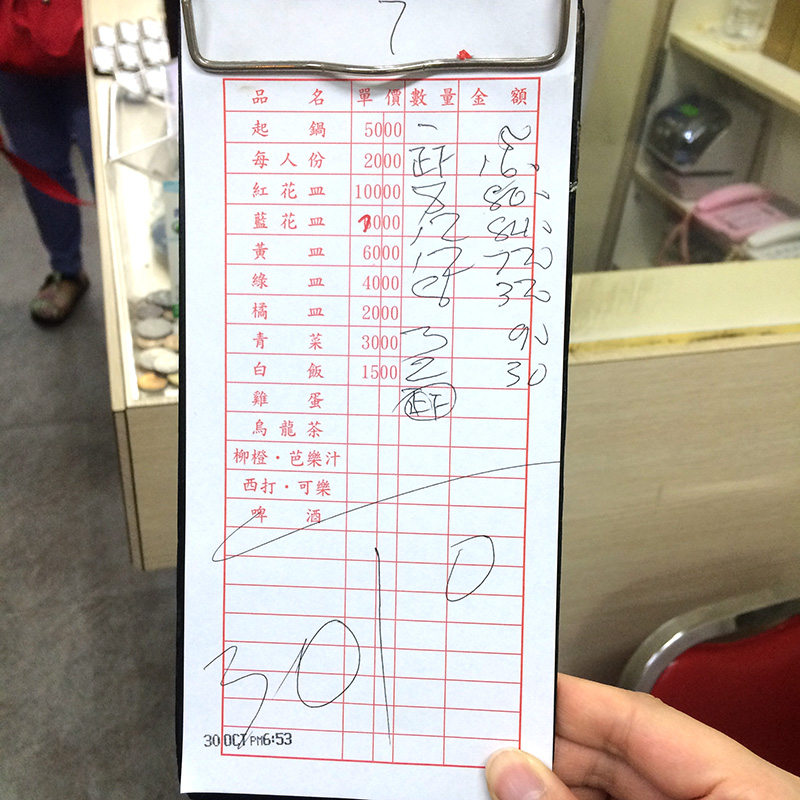 7
品名 單價 數量 金額
起鍋 5000 一
每人份 2000 正下 160
紅花皿 10000 8 800
藍花皿 7000 12 840
黃皿 6000 12 720
綠皿 4000 8 320
橘皿 2000
青菜 3000 3 90
白飯 1500 2 30
雞蛋 正下
烏龍茶
柳橙·芭樂汁
西打·可樂
啤酒
3010
30 OCT PM6:53